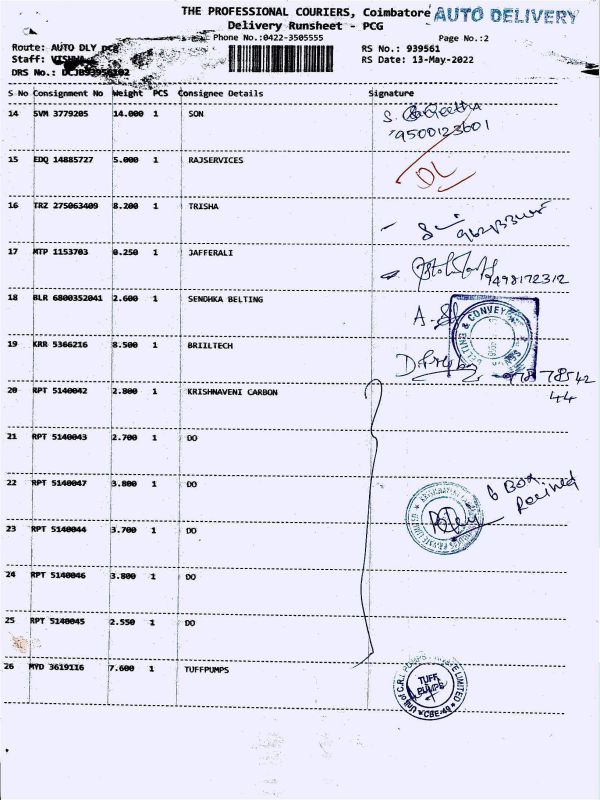 THE PROFESSIONAL COURIERS, Coimbatore AUTO DELIVERY
Delivery Runsheet - PCG
Phone No.:0422-3505555 Page No.:2
Route: AUTO DLY RS No.: 939561
Staff: RS Date: 13-May-2022
DRS No.:
S No Consignment No Weight PCS Consignee Details Signature
14 SVM 3779205 14.000 1 SON
9500123601
15 EDQ 14885727 5.000 1 RAJSERVICES
DL
16 TRZ 275063409 8.200 1 TRISHA
17 MTP 1153703 0.250 1 JAFFERALI
9498172312
18 BLR 6800352041 2.600 1 SENDHKA BELTING
BELTING & CONVEYOR
19 KRR 5366216 8.500 1 BRIILTECH
44
20 RPT 5140042 2.800 1 KRISHNAVENI CARBON
21 RPT 5140043 2.700 1 DO
22 RPT 5140047 3.800 1 DO
6 Box
Recived
23 RPT 5140044 3.700 1 DO
PRIVATE LIMITED
24 RPT 5140046 3.800 1 DO
25 RPT 5140045 2.550 1 DO
26 MYD 3619116 7.600 1 TUFFPUMPS
Unit of C.R.I PUMPS PRIVATE LIMITED
TUFF
PUMPS
CBE-49